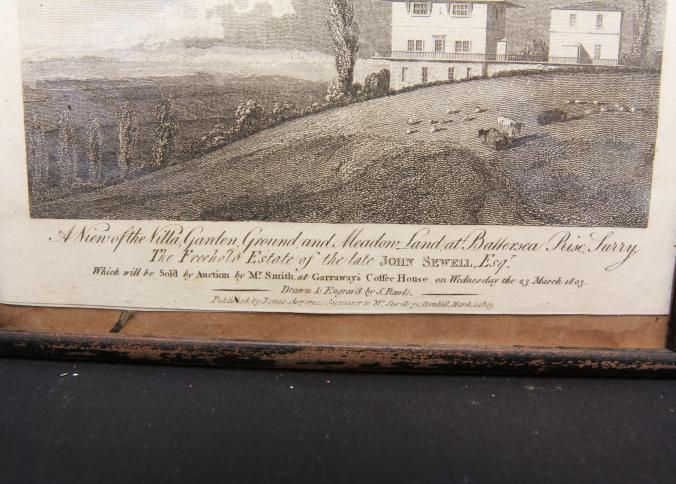 A View of the Villa, Garden, Ground, and Meadow Land, at Battersea Rise, Surry
The Freehold Estate of the late JOHN SEWELL, Esqr.
Which will be Sold by Auction by Mr. Smith, at Garraway's Coffee House on Wednesday the 23 March 1803.
Drawn & Engrav'd by S. Rawle.
Published by James Asperne, Successor to Mr. Sewell 32, Cornhill, March 1, 1803.